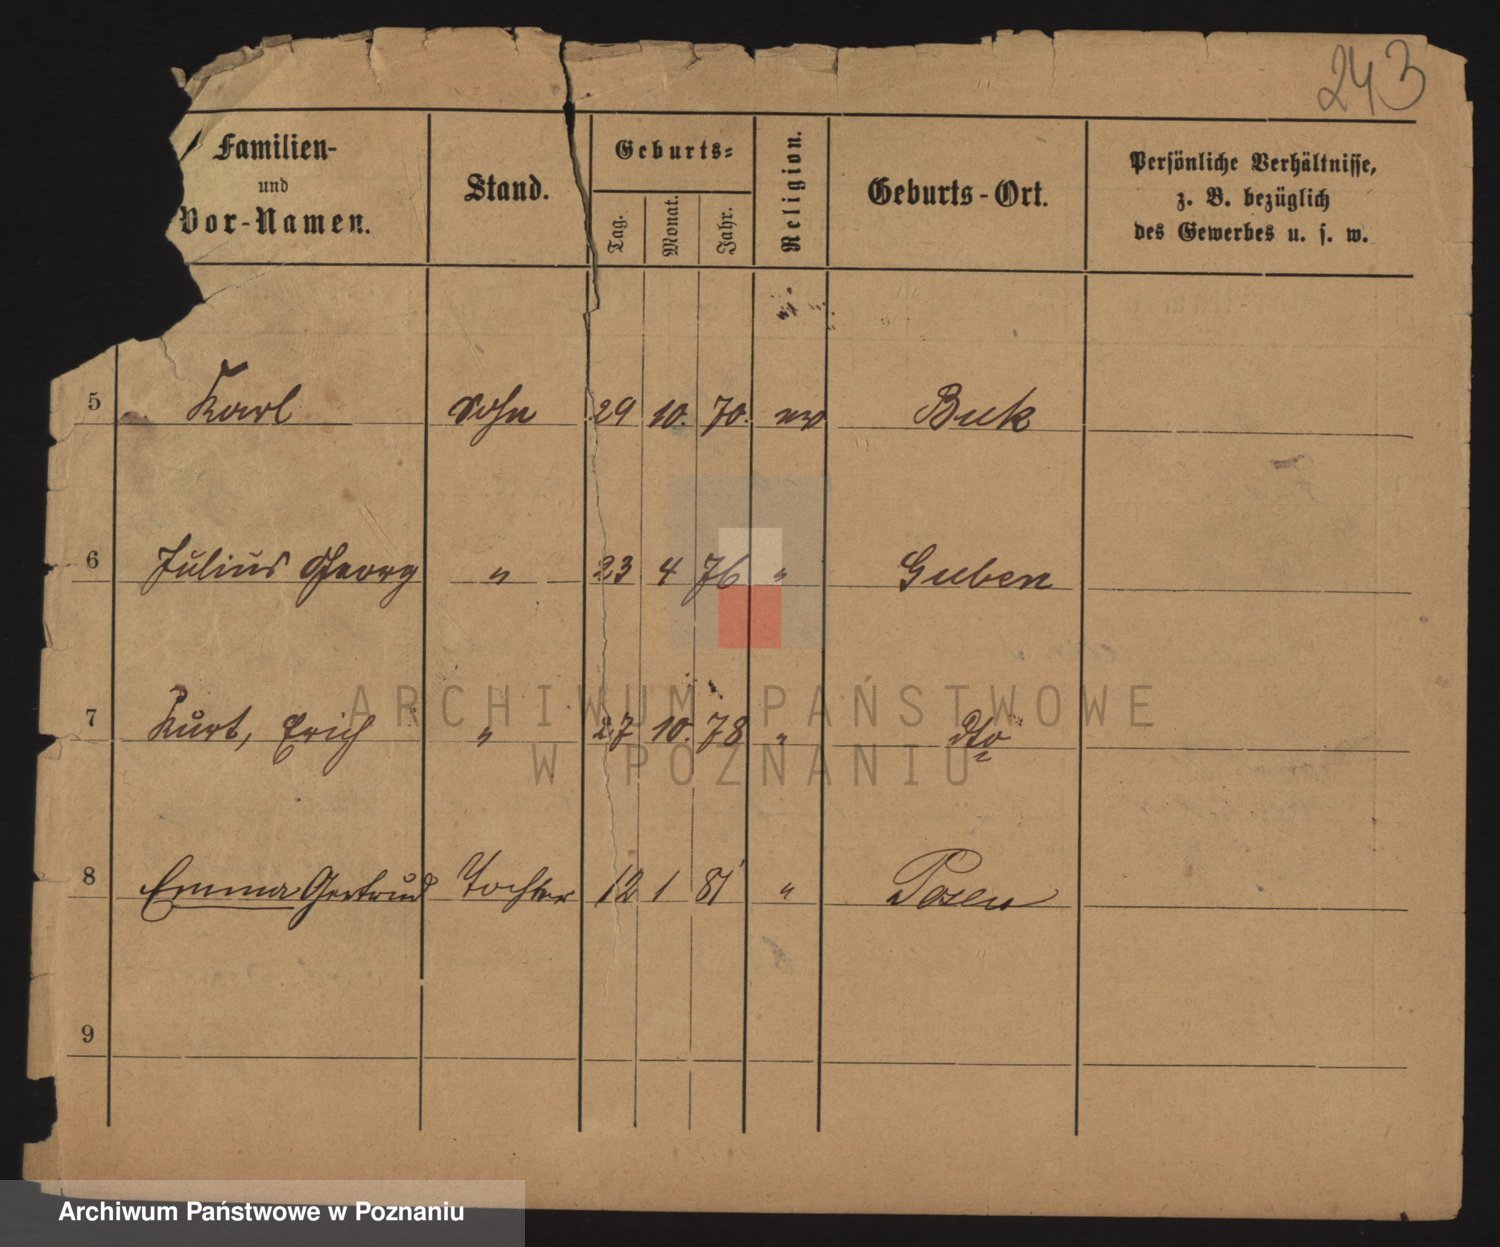 243
Familien-
und
Vor-Namen.
Stand.
Geburts-
Tag.
Monat.
Jahr.
Religion.
Geburts-Ort.
Persönliche Verhältnisse,
z. B. bezüglich
des Gewerbes u. s. w.
5 Karl Sohn 29 10. 70. ev Buk
6 Julius Georg " 23 4 76 " Guben
7 Kurt, Erich " 27 10. 78 " dto
8 Emma Gertrud Tochter 12 1 81 " Posen
9
ARCHIWUM PAŃSTWOWE
W POZNANIU
Archiwum Państwowe w Poznaniu